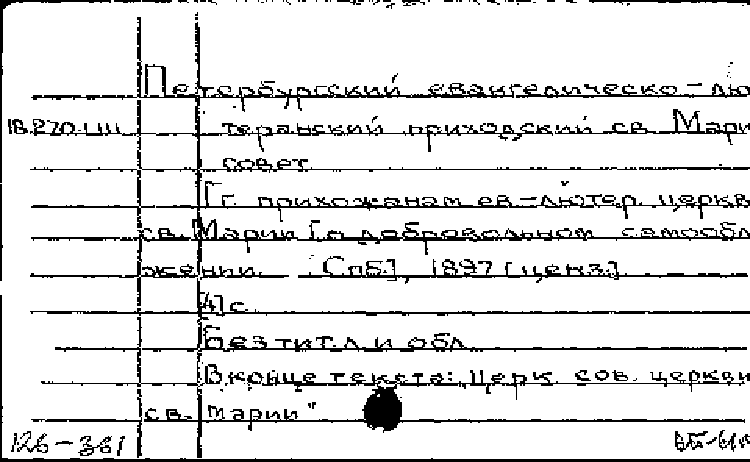 Петербургский евангелическо-лю
18.270.LIII терапский приходский св. Мари
совет
Гг. прихожанам ев.-лютер. церкв
св. Марии [о добровольном самообл
жении. [Спб.], 1897 [ценз.]
4] с.
Без тит. л. и обл.
В конце текста: „Церк. сов. церкви
св. Марии"
126-361